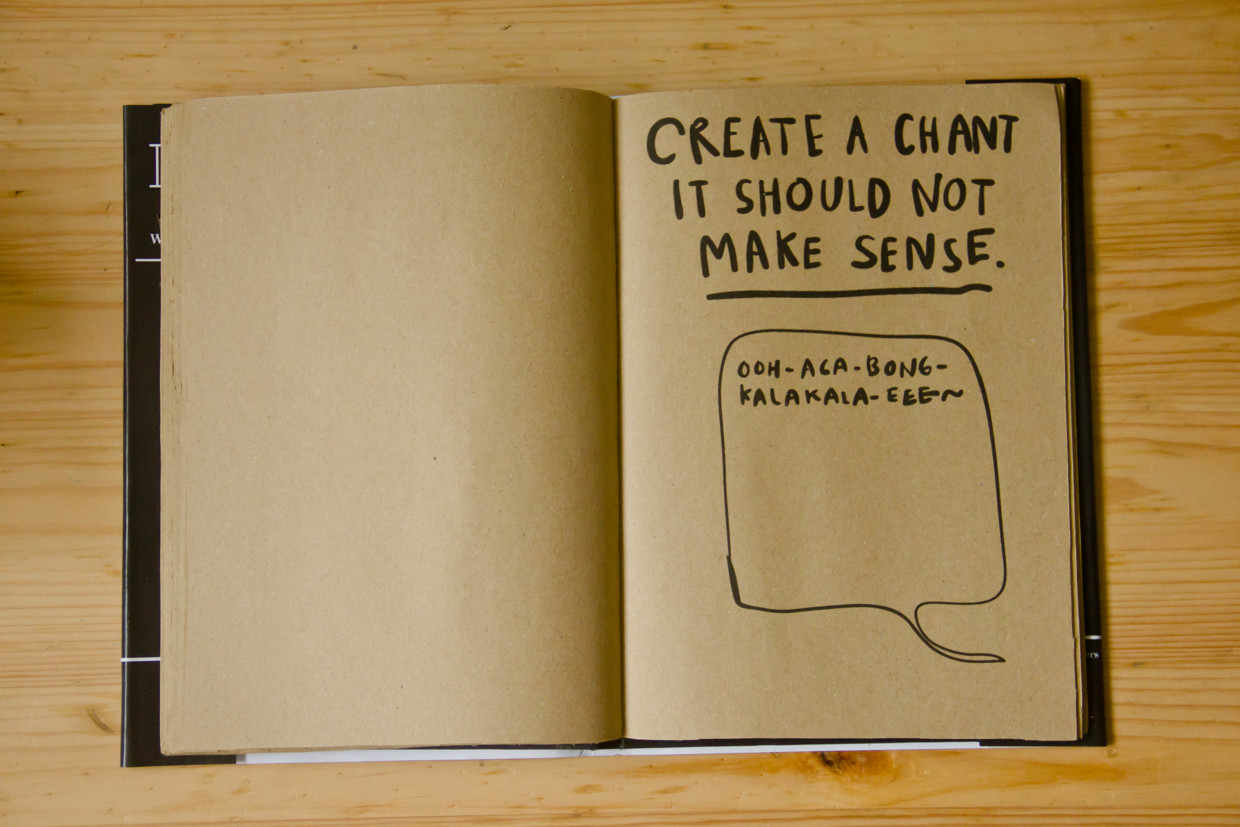 CREATE A CHANT
IT SHOULD NOT
MAKE SENSE.
OOH-AGA-BONG-
KALAKALA-EEE~